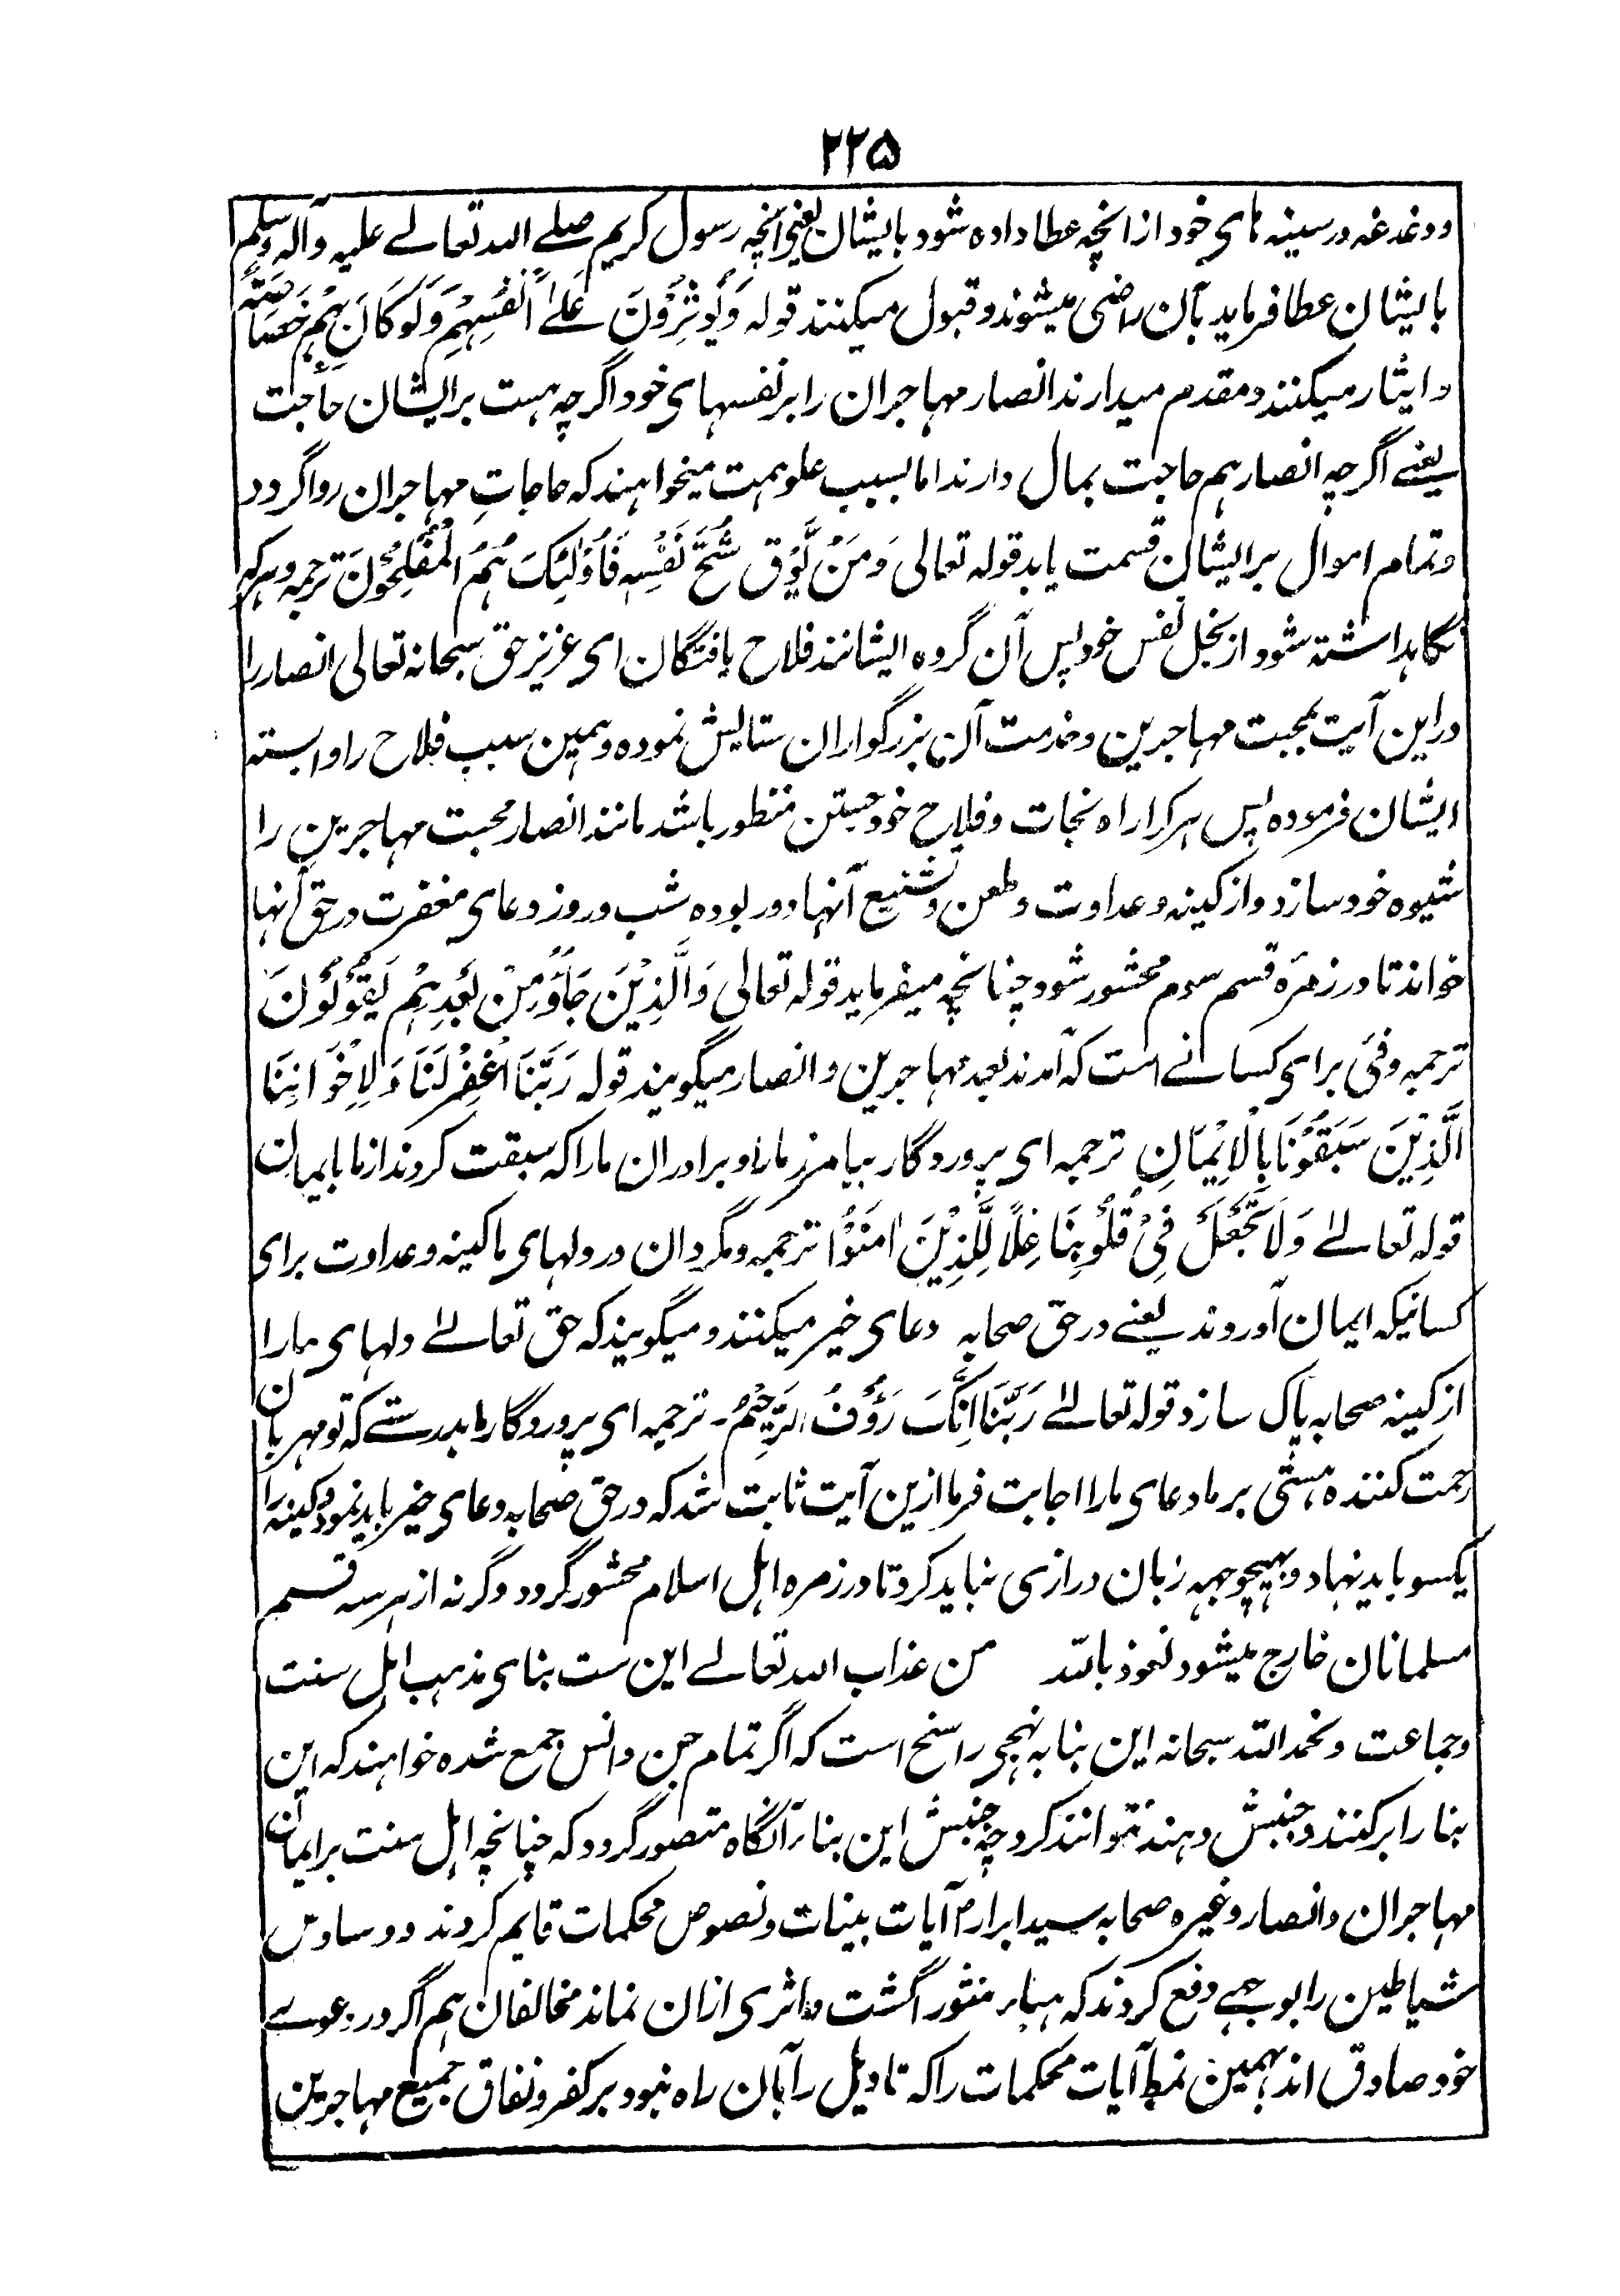 ۲۲۵
ودغدغه در سینه های خود از انچه عطا داده شود بایشان یعنی آنچه رسول کریم صلے الله تعالے علیه وآله وسلم
بایشان عطا فرماید بآن راضی میشوند و قبول میکنند قوله وَیُؤْثِرُوْنَ عَلٰۤی اَنْفُسِهِمْ وَلَوْ کَانَ بِهِمْ خَصَاصَةٌ
و ایثار میکنند و مقدم میدارند انصار مهاجران را بر نفسهای خود اگرچه هست بر ایشان حاجت
یعنے اگرچه انصار هم حاجت بمال دارند اما بسبب علو همت میخواهند که حاجاتِ مهاجران روا گردد
وتمام اموال بر ایشان قسمت یابد قوله تعالی وَمَنْ یُّوْقَ شُحَّ نَفْسِهٖ فَاُولٰٓئِکَ هُمُ الْمُفْلِحُوْنَ ترجمه وهرکه
نگاهداشته شود از بخل نفس خود پس آن گروه ایشانند فلاح یافتگان ای عزیز حق سبحانه تعالی انصار را
در این آیت بمحبت مهاجرین وخدمت آن بزرگواران ستایش نموده وبهمین سبب فلاح را وابسته
ایشان فرموده پس هر کرا راه نجات وفلاح خود جستن منظور باشد مانند انصار محبت مهاجرین را
شیوه خود سازد و از کینه وعداوت وطعن وتشنیع آنها دور بوده شب وروز دعای مغفرت در حق آنها
خواند تا در زمرۀ قسم سوم محشور شود چنانچه میفرماید قوله تعالی وَالَّذِیْنَ جَآؤُ مِنْ بَعْدِهِمْ یَقُوْلُوْنَ
ترجمه وفئ برای کسانے است که آمدند بعد مهاجرین وانصار میگویند قوله رَبَّنَا اغْفِرْ لَنَا وَلِاِخْوَانِنَا
الَّذِیْنَ سَبَقُوْنَا بِالْاِیْمَانِ ترجمه ای پروردگار بیامرز مارا وبرادران مارا که سبقت کردند از ما بایمان
قوله تعالےٰ وَلَا تَجْعَلْ فِیْ قُلُوْبِنَا غِلًّا لِّلَّذِیْنَ اٰمَنُوْا ترجمه ومگردان در دلهای ما کینه وعداوت برای
کسانیکه ایمان آوردند یعنے در حق صحابه دعای خیر میکنند ومیگویند که حق تعالےٰ دلهای مارا
از کینه صحابه پاک سازد قوله تعالےٰ رَبَّنَا اِنَّکَ رَؤُفٌ رَّحِیْمٌ - ترجمه ای پروردگار ما بدرستے که تو مهربان
رحمت کننده هستی بر ما دعای مارا اجابت فرما ازین آیت ثابت شد که در حق صحابه دعای خیر باید نمود وکینه را
یکسو باید نهاد وبهیچوجهه زبان درازی نباید کرد تا در زمره اهل اسلام محشور گردد وگرنه از هر سه قسم
مسلمانان خارج میشود نعوذ بالله من عذاب الله تعالے این ست بنای مذهب اهل سنت
وجماعت وبحمد الله سبحانه این بنا به نهجی راسخ است که اگر تمام جن وانس جمع شده خواهند که این
بنا را برکنند وجنبش دهند نتوانند کرد چه جنبش این بناء آنگاه متصور گردد که چنانچه اهل سنت بر ایمان
مهاجران وانصار وغیره صحابه سید ابرار آیات بینات ونصوص محکمات قایم کردند ووساوس
شیاطین را بوجهے دفع کردند که هباء منثور گشت واثری ازان نماند مخالفان هم اگر در دعوے
خود صادق اند بهمین نمط آیات محکمات را که تاویل را بآن راه نبود بر کفر ونفاق جمیع مهاجرین